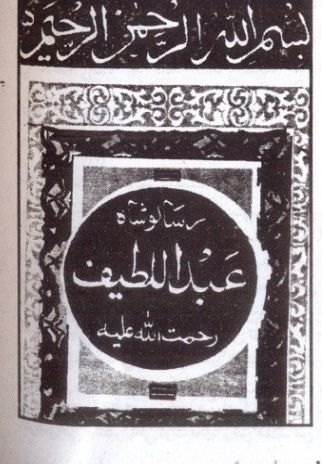 بسم الله الرحمن الرحيم
رسالو شاه
عبداللطيف
رحمت الله عليه